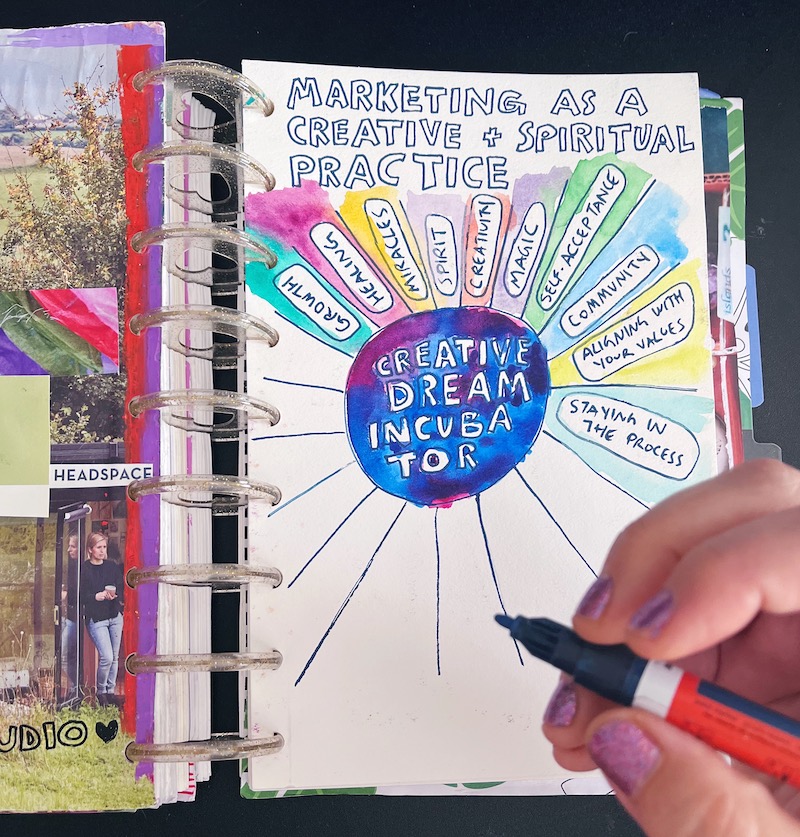 MARKETING AS A
CREATIVE + SPIRITUAL
PRACTICE
GROWTH
HEALING
MIRACLES
SPIRIT
CREATIVITY
MAGIC
SELF-ACCEPTANCE
COMMUNITY
ALIGNING WITH
YOUR VALUES
STAYING IN
THE PROCESS
CREATIVE
DREAM
INCUBA
TOR
HEADSPACE
UDIO
islands